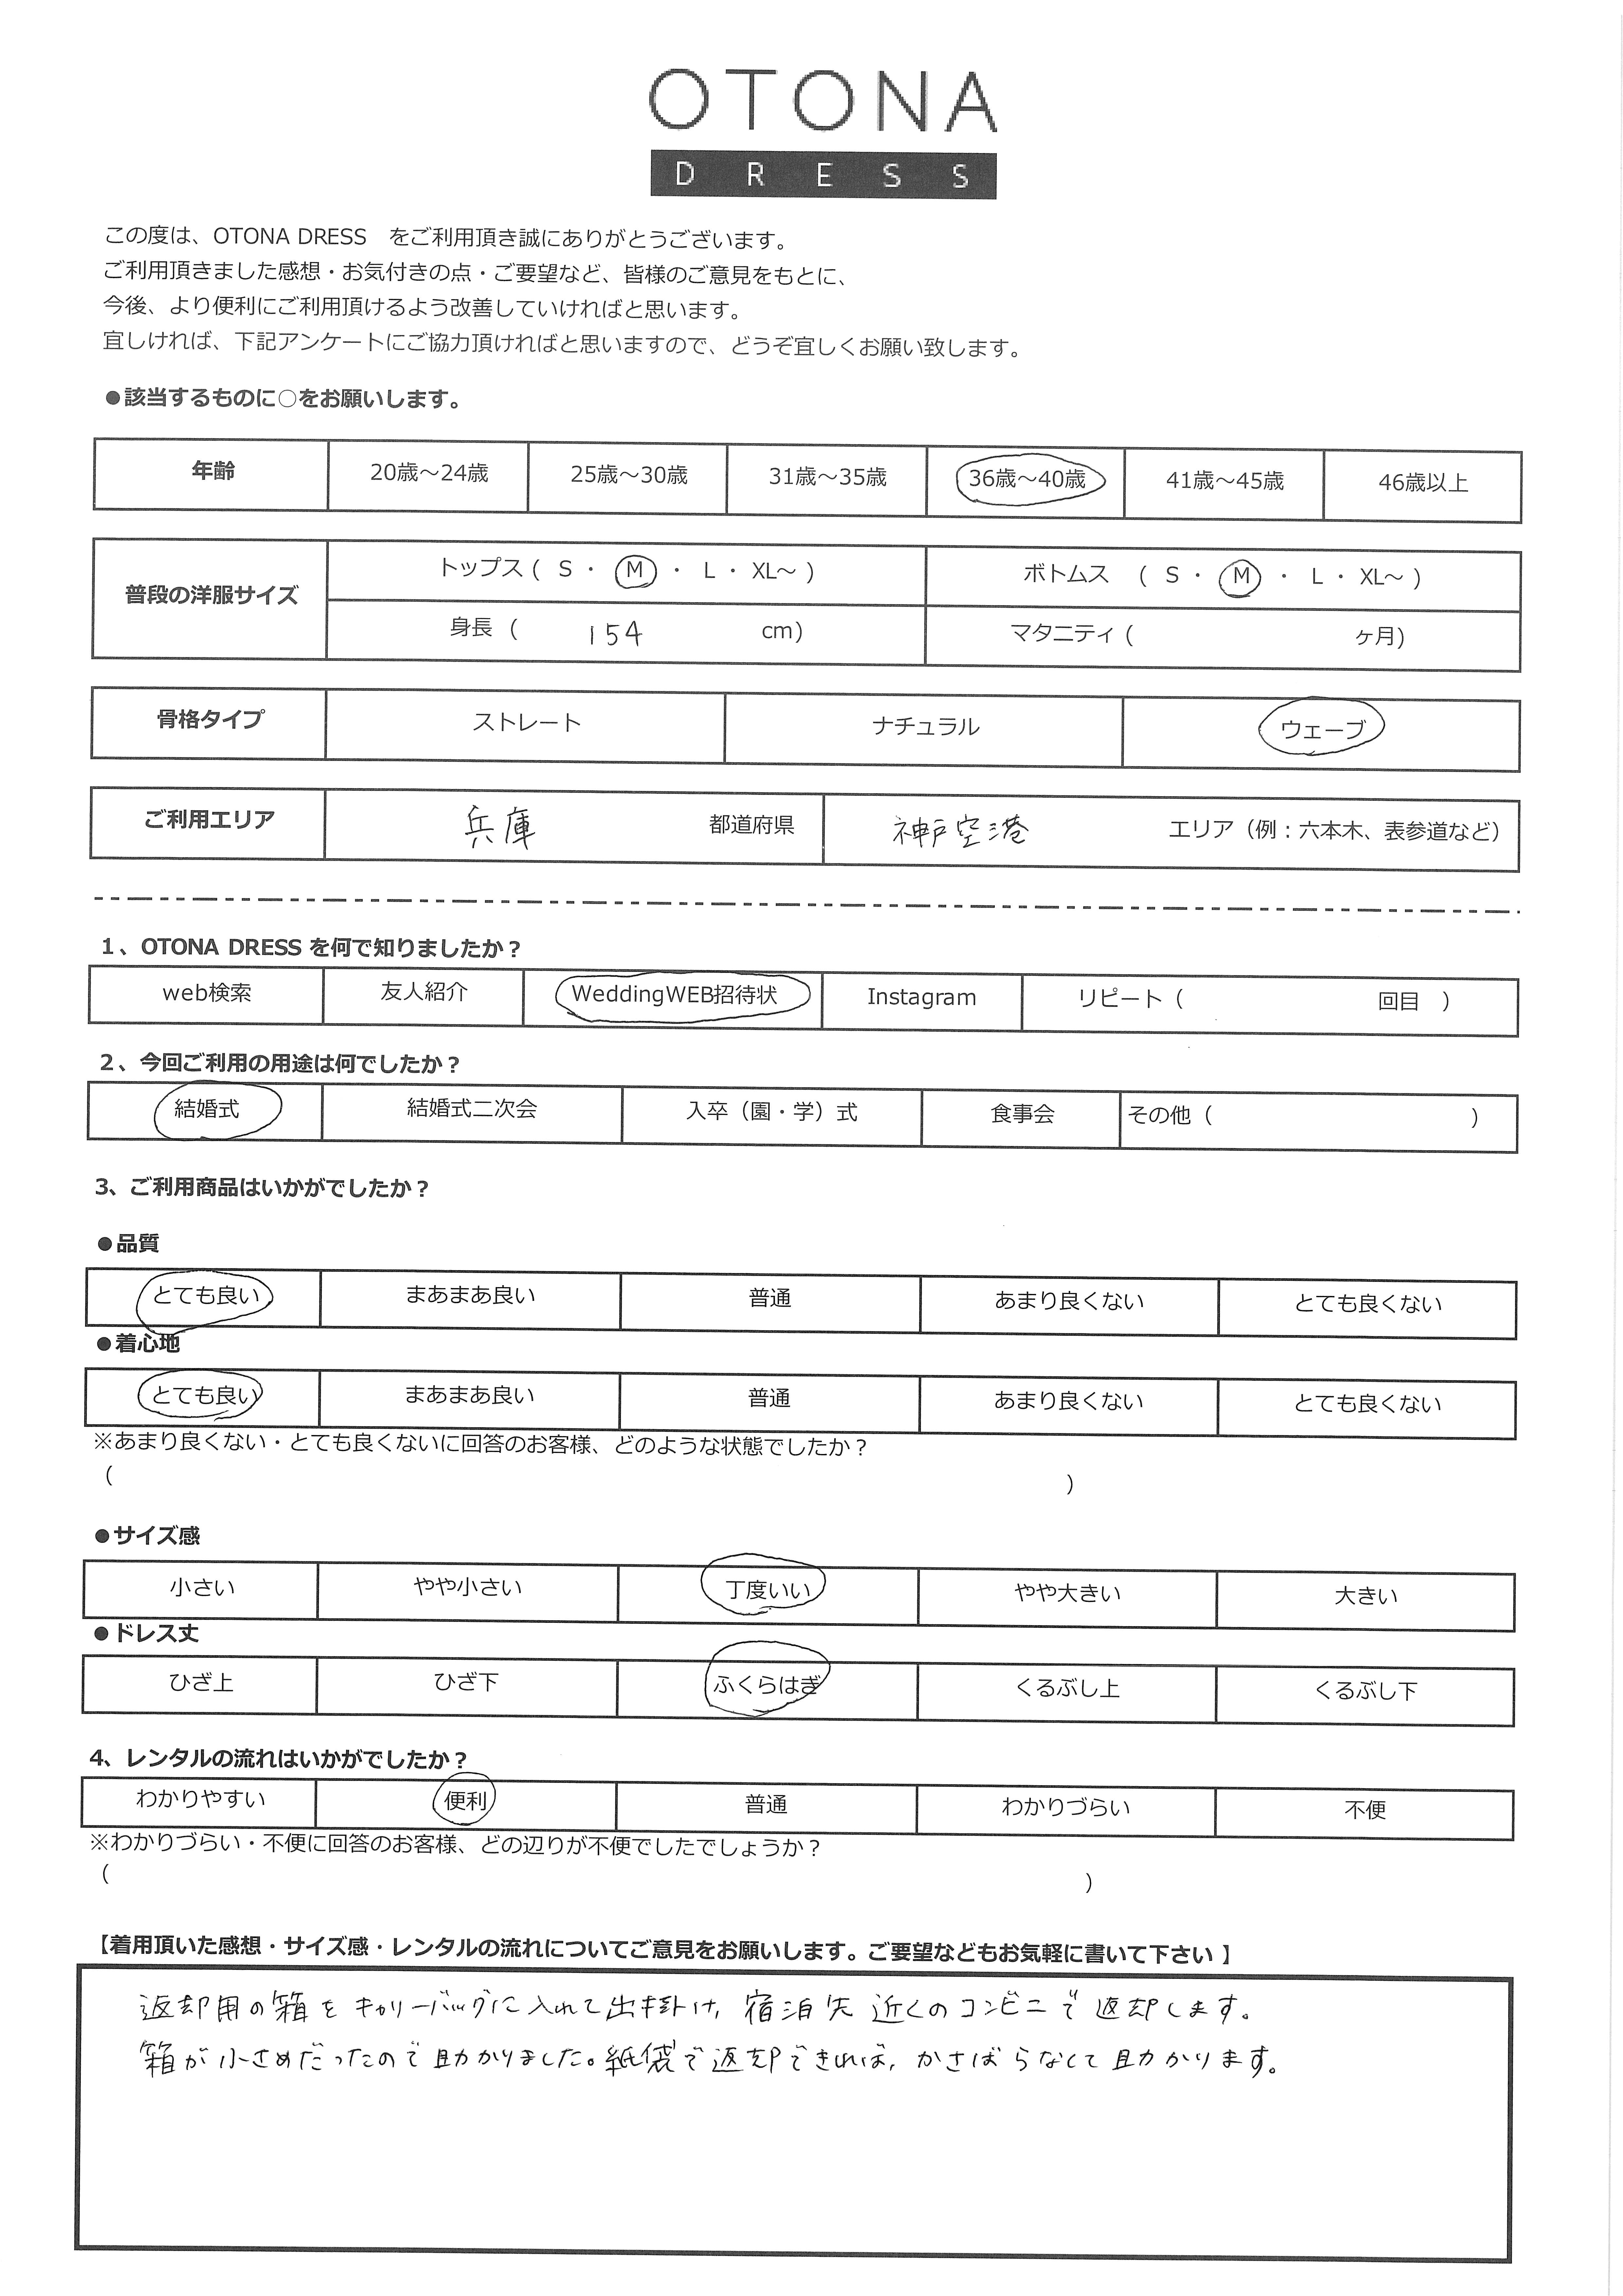 OTONA
DRESS
この度は、OTONA DRESS　をご利用頂き誠にありがとうございます。
ご利用頂きました感想・お気付きの点・ご要望など、皆様のご意見をもとに、
今後、より便利にご利用頂けるよう改善していければと思います。
宜しければ、下記アンケートにご協力頂ければと思いますので、どうぞ宜しくお願い致します。
●該当するものに○をお願いします。
年齢 20歳～24歳 25歳～30歳 31歳～35歳 36歳～40歳 41歳～45歳 46歳以上
普段の洋服サイズ トップス ( S ・ M ・ L ・ XL～ ) ボトムス ( S ・ M ・ L ・ XL～ )
身長 ( 154 cm) マタニティ ( ヶ月)
骨格タイプ ストレート ナチュラル ウェーブ
ご利用エリア 兵庫 都道府県 神戸空港 エリア（例：六本木、表参道など）
1、OTONA DRESS を何で知りましたか？
web検索 友人紹介 WeddingWEB招待状 Instagram リピート（ 回目 ）
2、今回ご利用の用途は何でしたか？
結婚式 結婚式二次会 入卒（園・学）式 食事会 その他（ ）
3、ご利用商品はいかがでしたか？
●品質
とても良い まあまあ良い 普通 あまり良くない とても良くない
●着心地
とても良い まあまあ良い 普通 あまり良くない とても良くない
※あまり良くない・とても良くないに回答のお客様、どのような状態でしたか？
（ ）
●サイズ感
小さい やや小さい 丁度いい やや大きい 大きい
●ドレス丈
ひざ上 ひざ下 ふくらはぎ くるぶし上 くるぶし下
4、レンタルの流れはいかがでしたか？
わかりやすい 便利 普通 わかりづらい 不便
※わかりづらい・不便に回答のお客様、どの辺りが不便でしたでしょうか？
（ ）
【着用頂いた感想・サイズ感・レンタルの流れについてご意見をお願いします。ご要望などもお気軽に書いて下さい 】
返却用の箱をキャリーバッグに入れて出掛け、宿泊先近くのコンビニで返却します。
箱が小さめだったので助かりました。紙袋で返却できれば、かさばらなくて助かります。